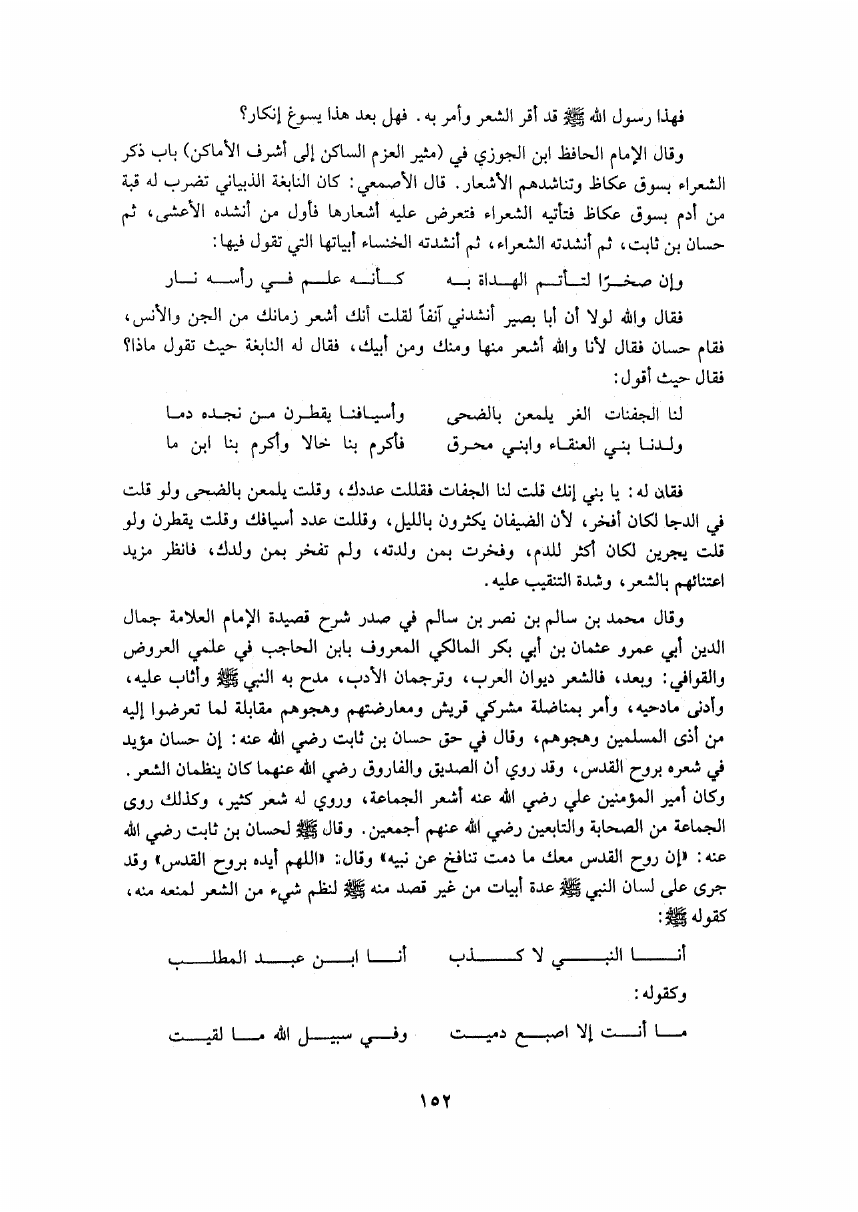 فهذا رسول الله ﷺ قد أقر الشعر وأمر به. فهل بعد هذا يسوغ إنكار؟
وقال الإمام الحافظ ابن الجوزي في (مثير العزم الساكن إلى أشرف الأماكن) باب ذكر
الشعراء بسوق عكاظ وتناشدهم الأشعار. قال الأصمعي: كان النابغة الذبياني تضرب له قبة
من أدم بسوق عكاظ فتأتيه الشعراء فتعرض عليه أشعارها فأول من أنشده الأعشى، ثم
حسان بن ثابت، ثم أنشدته الشعراء، ثم أنشدته الخنساء أبياتها التي تقول فيها:
وإن صخرًا لتأتم الهداة به كأنه علم في رأسه نار
فقال والله لولا أن أبا بصير أنشدني آنفاً لقلت أنك أشعر زمانك من الجن والأنس،
فقام حسان فقال لأنا والله أشعر منها ومنك ومن أبيك، فقال له النابغة حيث تقول ماذا؟
فقال حيث أقول:
لنا الجفنات الغر يلمعن بالضحى وأسيافنا يقطرن من نجده دما
ولدنا بني العنقاء وابني محرق فأكرم بنا خالا وأكرم بنا ابن ما
فقان له: يا بني إنك قلت لنا الجفات فقللت عددك، وقلت يلمعن بالضحى ولو قلت
في الدجا لكان أفخر، لأن الضيفان يكثرون بالليل، وقللت عدد أسيافك وقلت يقطرن ولو
قلت يجرين لكان أكثر للدم، وفخرت بمن ولدته، ولم تفخر بمن ولدك، فانظر مزيد
اعتنائهم بالشعر، وشدة التنقيب عليه.
وقال محمد بن سالم بن نصر بن سالم في صدر شرح قصيدة الإمام العلامة جمال
الدين أبي عمرو عثمان بن أبي بكر المالكي المعروف بابن الحاجب في علمي العروض
والقوافي: وبعد، فالشعر ديوان العرب، وترجمان الأدب، مدح به النبي ﷺ وأثاب عليه،
وأدنى مادحيه، وأمر بمناضلة مشركي قريش ومعارضتهم وهجوهم مقابلة لما تعرضوا إليه
من أذى المسلمين وهجوهم، وقال في حق حسان بن ثابت رضي الله عنه: إن حسان مؤيد
في شعره بروح القدس، وقد روي أن الصديق والفاروق رضي الله عنهما كان ينظمان الشعر.
وكان أمير المؤمنين علي رضي الله عنه أشعر الجماعة، وروي له شعر كثير، وكذلك روى
الجماعة من الصحابة والتابعين رضي الله عنهم أجمعين. وقال ﷺ لحسان بن ثابت رضي الله
عنه: «إن روح القدس معك ما دمت تنافخ عن نبيه» وقال: «اللهم أيده بروح القدس» وقد
جرى على لسان النبي ﷺ عدة أبيات من غير قصد منه ﷺ لنظم شيء من الشعر لمنعه منه،
كقوله ﷺ:
أنا النبي لا كذب أنا ابن عبد المطلب
وكقوله:
ما أنت إلا اصبع دميت وفي سبيل الله ما لقيت
١٥٢